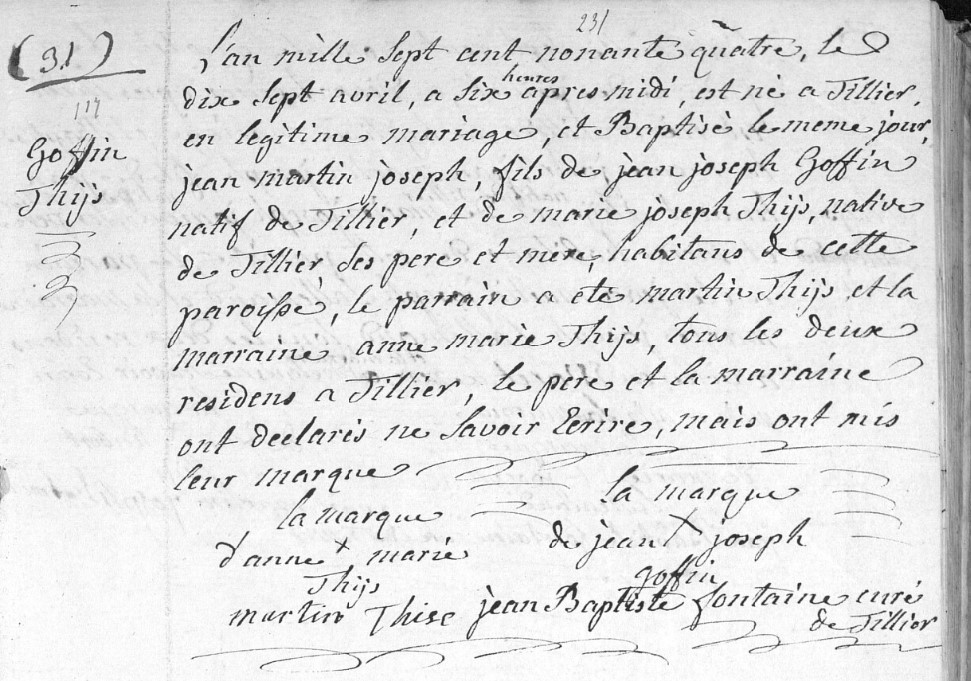 231
(31)
117
Goffin
Thijs
L'an mille Sept cent nonante quatre, le
dix Sept avril, a Six heures apres midi, est né a Tillier,
en legitime mariage, et Baptisé le meme jour,
jean martin joseph, fils de jean joseph Goffin
natif de Tillier, et de marie joseph Thijs, native
de Tillier Ses pere et mere, habitans de cette
paroisse, le parrain a eté martin Thijs et la
marraine anne marie Thijs, tous les deux
residens a Tillier, le pere et la marraine
ont declarés ne Savoir Ecrire, mais ont mis
leur marque
la marque
d'anne x marie
Thijs
la marque
de jean X joseph
goffin
martin Thise jean Baptiste fontaine curé
de Tillier